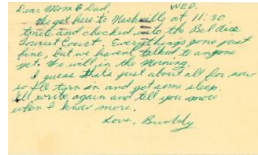 Dear Mom & Dad, WED.
We got here to Nashville at 11:30
tonite and checked into the Bell Aire
Tourist Court. Everythings gone just
fine, but we haven't talked to anyone
yet. We will in the Morning.
I guess thats just about all for now
so I'll turn in and get some sleep.
I'll write again and tell you more
when I know more.
Love, Buddy